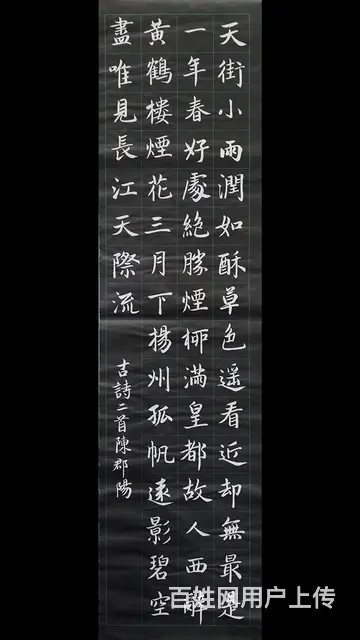 天街小雨潤如酥草色遥看近却無最是
一年春好處絶勝煙柳滿皇都故人西辭
黄鶴楼煙花三月下揚州孤帆遠影碧空
盡唯見長江天際流
古詩二首陳郡陽
百姓网用户上传